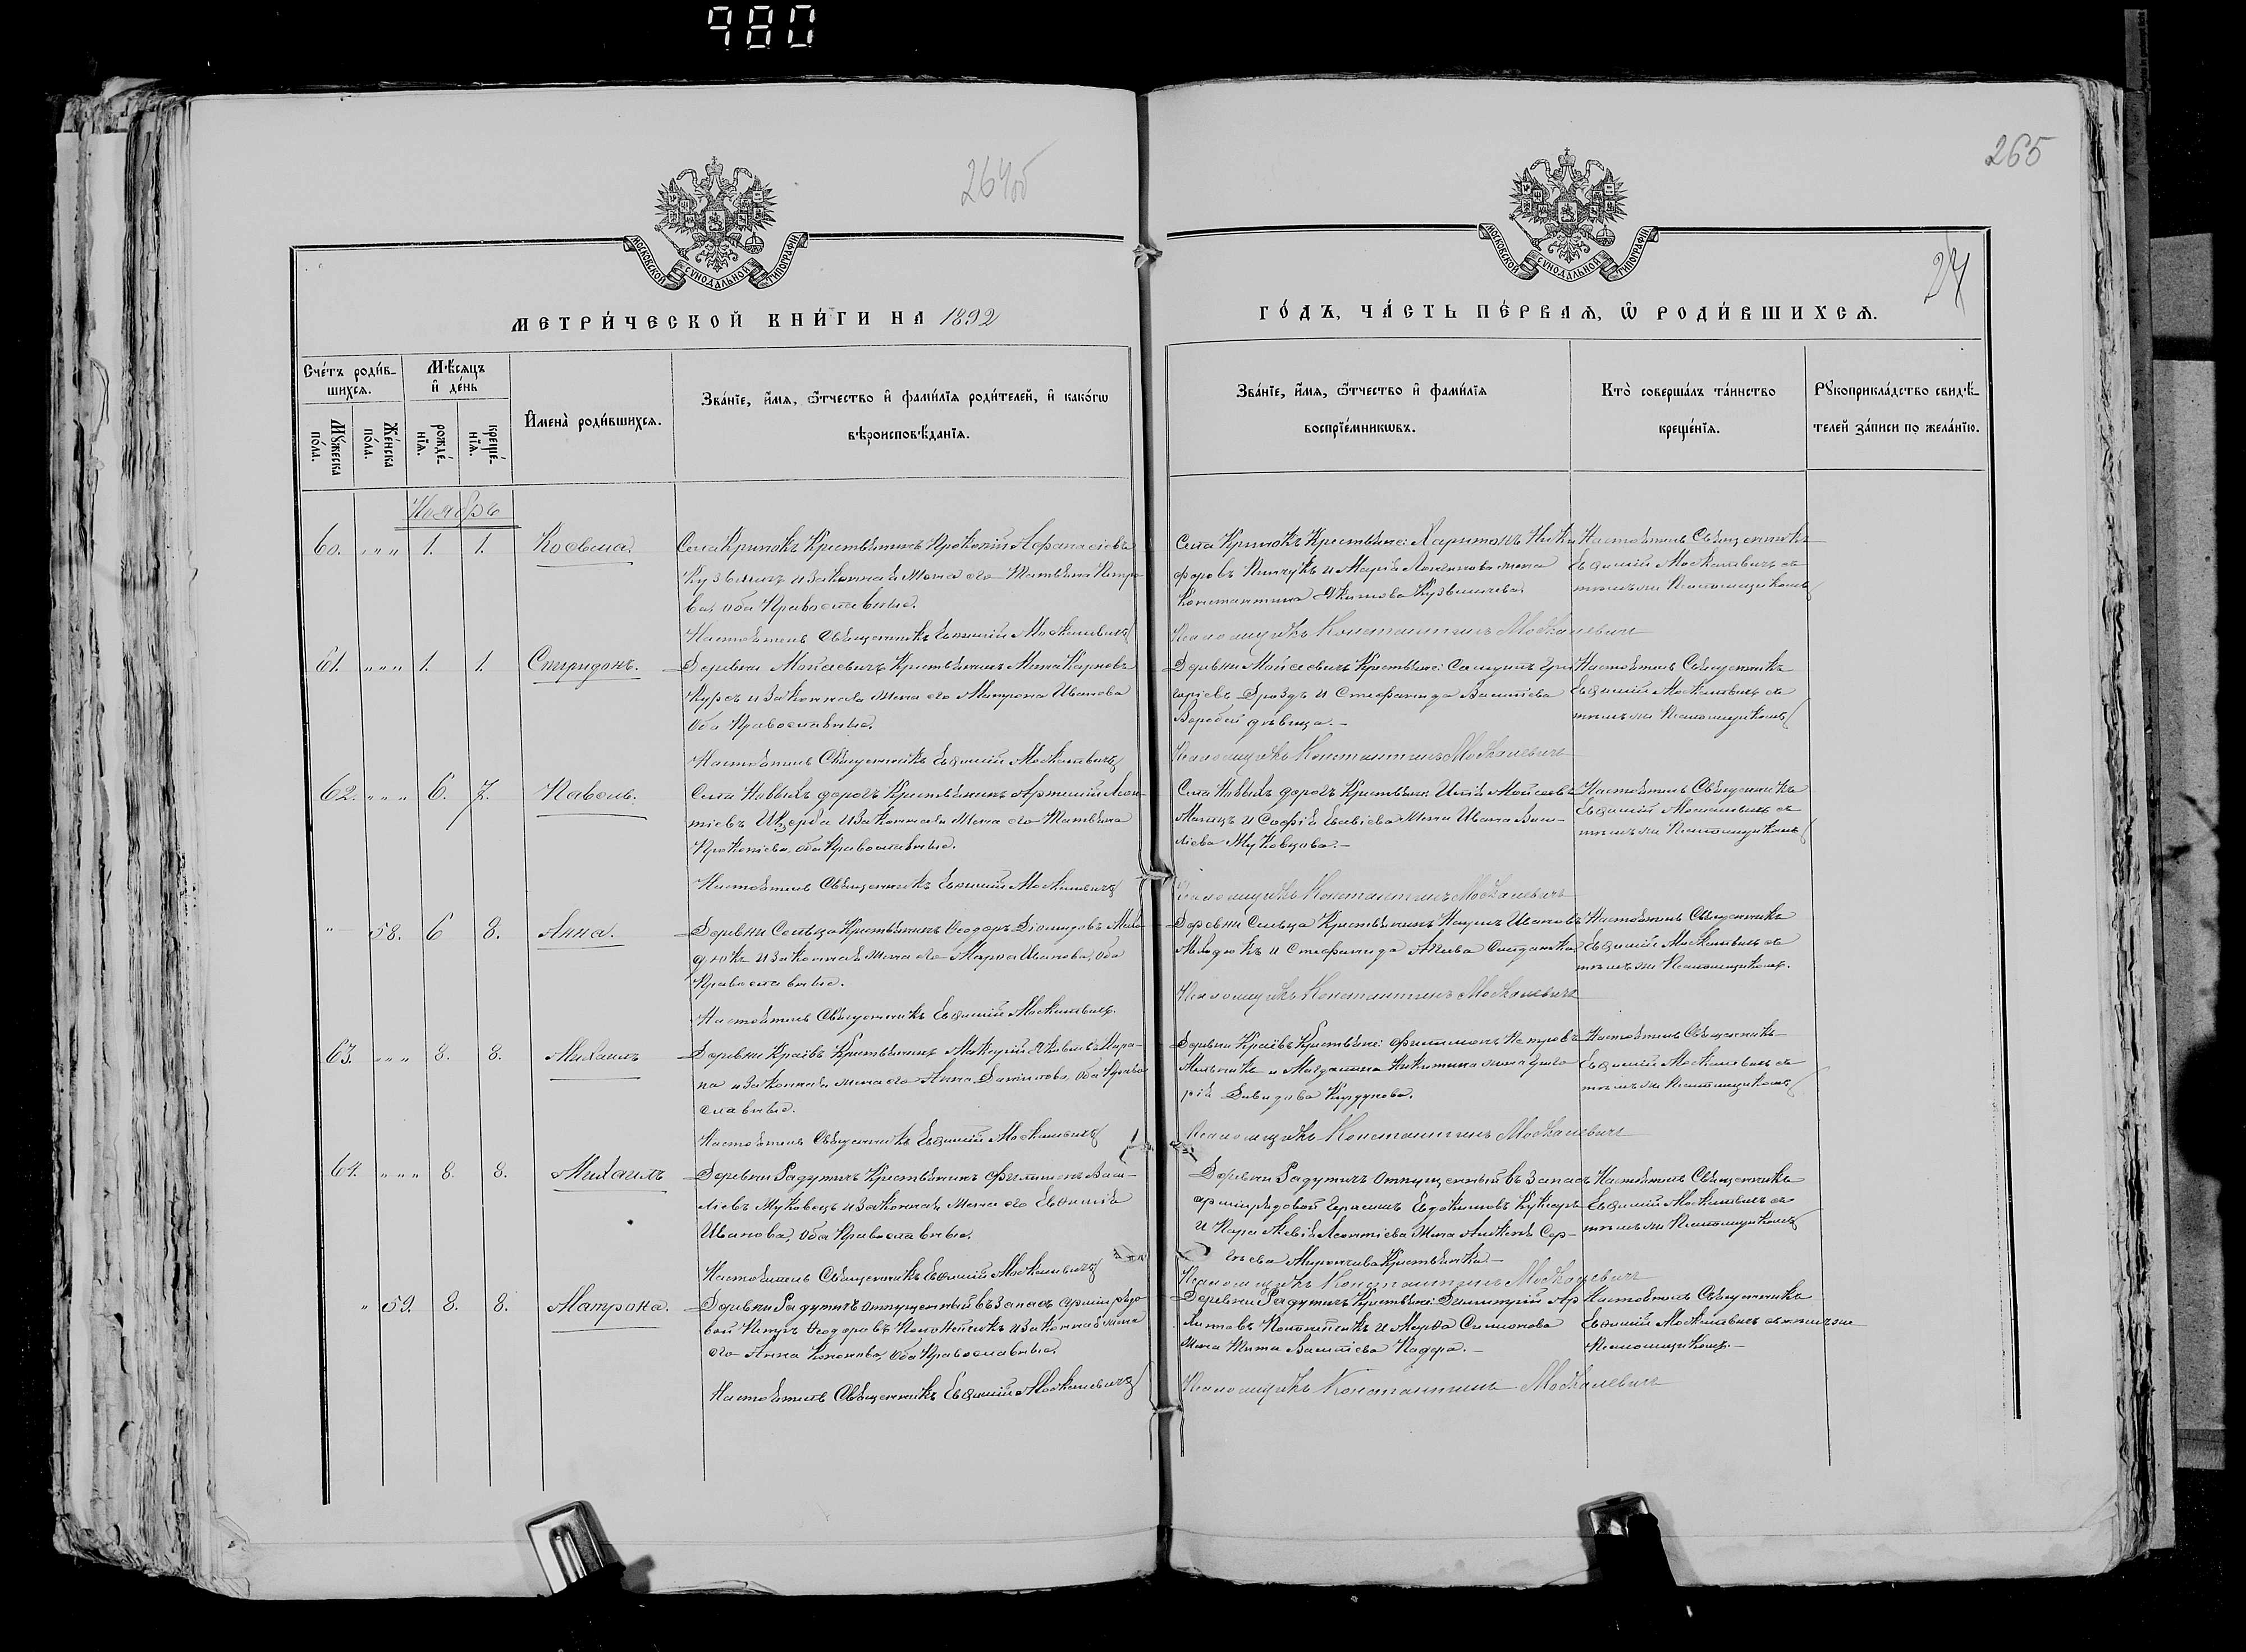 980
264об
265
24
МОСКОВСКОЙ СѴНОДАЛЬНОЙ ТИПОГРАФІИ
МОСКОВСКОЙ СѴНОДАЛЬНОЙ ТИПОГРАФІИ
МЕТРИ́ЧЕСКОЙ КНИ́ГИ НА 1892
ГО́ДЪ, ЧА́СТЬ ПЕ́РВАѦ, Ѡ҆ РОДИ́ВШИХСѦ.
Сче́тъ роди́в-
шихсѧ.
Мꙋ́жеска
по́ла.
Же́нска
по́ла.
Мѣ́сѧцъ
и҆ де́нь
рожде́-
нїѧ.
креще́-
нїѧ.
И҆мена̀ роди́вшихсѧ.
Зва́нїе, и҆́мѧ, ѻ҆́тчество и҆ фами́лїѧ роди́телей, и҆ како́гѡ
вѣроисповѣ́данїѧ.
Зва́нїе, и҆́мѧ, ѻ҆́тчество и҆ фами́лїѧ
воспрїе́мникѡвъ.
Кто̀ соверша́лъ та́инство
креще́нїѧ.
Рꙋкоприкла́дство свидѣ́-
телей за́писи по жела́нїю.
Ноябрь
60. „ „ „ 1. 1. Косьма.
Села Кринокъ Крестьянинъ Прокопій Афанасіевъ
и законная жена его Татьяна Петро-
ва, оба Православные.
Настоятель Священникъ Евфимій Москалевичъ
Села Кринокъ Крестьяне: Харитонъ Ники
форовъ и Марія жена
Константина
Псаломщикъ Константинъ Москалевичъ
Настоятель Священникъ
Евфимій Москалевичъ съ
псаломщикомъ
61. „ „ „ 1. 1. Спиридонъ.
Деревни Моисеевичъ Крестьянинъ Карповъ
и законная жена его Матрона Иванова
оба Православные.
Настоятель Священникъ Евфимій Москалевичъ
Деревни Моисеевичъ Крестьяне: Гри
горіевъ Дроздъ и Стефанида Василіева
Воробей дѣвица.-
Псаломщикъ Константинъ Москалевичъ
Настоятель Священникъ
Евфимій Москалевичъ съ
псаломщикомъ
62. „ „ „ 6. 7. Павелъ.
Села Новыхъ дорогъ Крестьянинъ Артемій Леон-
тіевъ и законная жена его Татьяна
Прокопіева, оба Православные.
Настоятель Священникъ Евфимій Москалевичъ
Села Новыхъ дорогъ Крестьяне: Илія Моисеевъ
и Софія жена Ивана Васи-
ліева Жуковцова.-
Псаломщикъ Константинъ Москалевичъ
Настоятель Священникъ
Евфимій Москалевичъ съ
псаломщикомъ
„ 58. 6 8. Анна.
Деревни Сельца Крестьянинъ Ѳеодоръ
и законная жена его Марѳа Иванова, оба
Православные.
Настоятель Священникъ Евфимій Москалевичъ.
Деревни Сельца Крестьянинъ Наумъ Ивановъ
и Стефанида
Псаломщикъ Константинъ Москалевичъ
Настоятель Священникъ
Евфимій Москалевичъ съ
псаломщикомъ.
63. „ „ „ 8. 8. Михаилъ
Деревни Краівъ Крестьянинъ
и законная жена его Анна Даніилова, оба Право
славные.
Настоятель Священникъ Евфимій Москалевичъ
Деревни Краівъ Крестьяне: Филимонъ Петровъ
Мельникъ и Магдалина Никитина жена Григо
рія Давидова
Псаломщикъ Константинъ Москалевичъ
Настоятель Священникъ
Евфимій Москалевичъ съ
псаломщикомъ
64. „ „ „ 8. 8. Михаилъ
Деревни Радутичъ Крестьянинъ Филимонъ Васи-
ліевъ Жуковецъ и законная жена его Евфимія
Иванова, оба Православные.
Настоятель Священникъ Евфимій Москалевичъ
Деревни Радутичъ отпущенный въ запасъ
арміи рядовой Герасимъ Евдокимовъ
и Параскевія Леонтіева жена Сер-
гѣева Мирончика Крестьянка.-
Псаломщикъ Константинъ Москалевичъ
Настоятель Священникъ
Евфимій Москалевичъ съ
псаломщикомъ
„ 59. 8. 8. Матрона.
Деревни Радутичъ отпущенный въ запасъ арміи рядо
вой Петръ Ѳеодоровъ и законная жена
его Анна Кононова, оба Православные.
Настоятель Священникъ Евфимій Москалевичъ
Деревни Радутичъ Крестьяне: Димитрій
и Марѳа Симонова
жена Тита Василіева
Псаломщикъ Константинъ Москалевичъ
Настоятель Священникъ
Евфимій Москалевичъ съ
псаломщикомъ.-